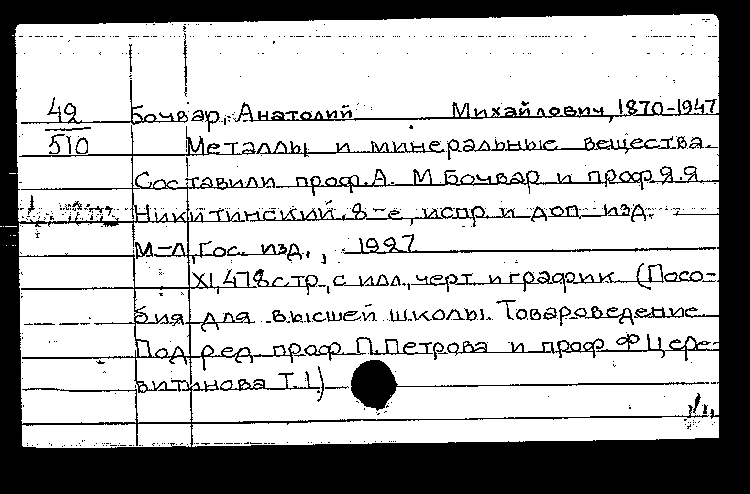 42
510
Бочвар, Анатолий Михайлович, 1870-1947
Металлы и минеральные вещества.
Составили проф. А. М. Бочвар и проф. Я. Я.
Никитинский. 8-е, испр. и доп. изд.
М-Л, Гос. изд., 1927
XI, 478 стр, с илл, черт и график (Посо-
бия для высшей школы. Товароведение
Под ред. проф. П. Петрова и проф. Ф Цере-
витинова Т. I.)